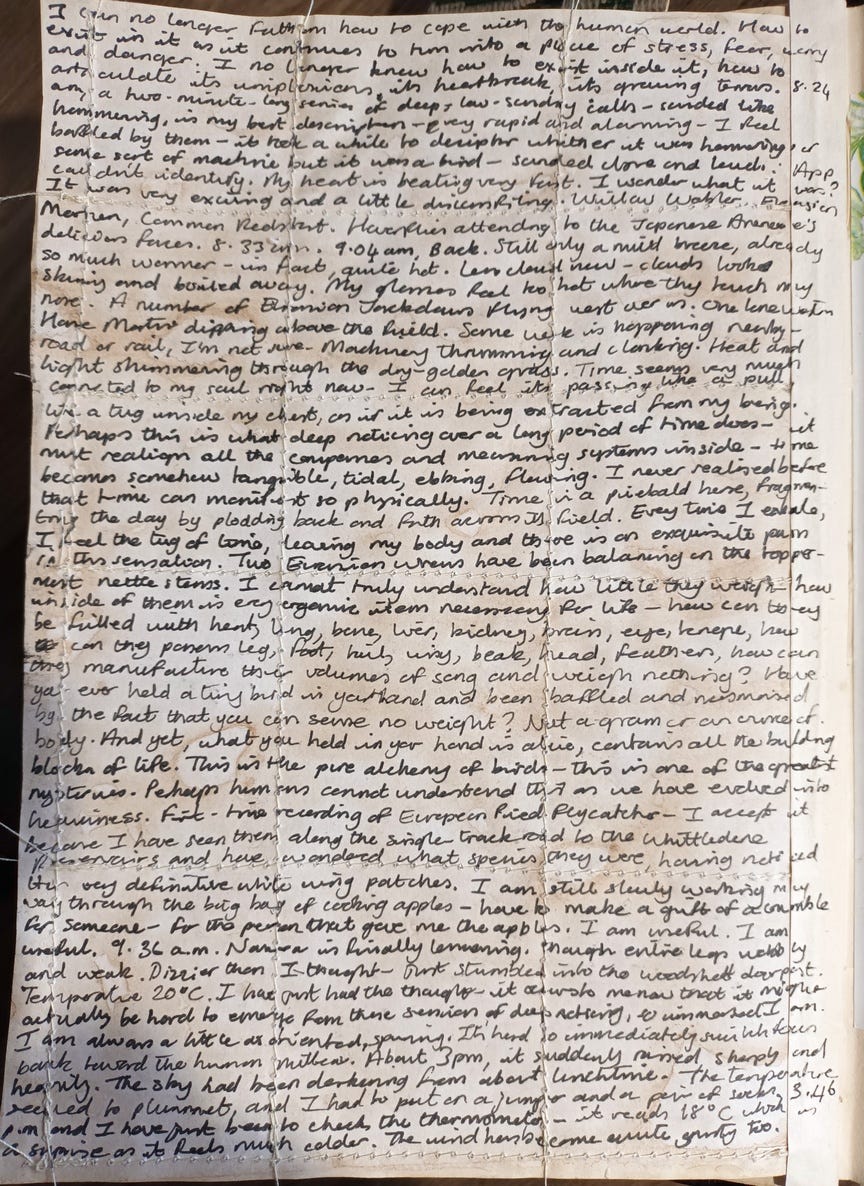 I can no longer fathom how to cope with the human world. How to
exist in it as it continues to turn into a place of stress, fear, worry
and danger. I no longer know how to exist inside it, how to
articulate its unhappiness, its heartbreak, its growing terrors. 8.24
am, a two-minute-long series of deep, low-sounding calls - sounded like
hammering, is my best description - very rapid and alarming - I feel
baffled by them - it took a while to decipher whether it was hammering, or
some sort of machine but it was a bird - sounded close and loud. App
couldn't identify. My heart is beating very fast. I wonder what it was?
It was very exciting and a little discomfiting. Willow Warbler. Eurasian
Marten, Common Redstart. Hoverflies attending to the Japanese Anemone's
delicious faces. 8.33 am. 9.04 am, Back. Still only a mild breeze, already
so much warmer - in fact, quite hot. Less cloud now - clouds look
skinny and boiled away. My glasses feel too hot where they touch my
nose. A number of Eurasian Jackdaws flying west over us. One lone Western
House Martin dipping above the field. Some work is happening nearby -
road or rail, I'm not sure. Machinery thrumming and clanking. Heat and
light shimmering through the dry-golden grass. Time seems very much
connected to my soul right now - I can feel its passing like a pull,
like a tug inside my chest, as if it is being extracted from my being.
Perhaps this is what deep noticing over a long period of time does - it
must realign all the compasses and measuring systems inside - time
becomes somehow tangible, tidal, ebbing, flowing. I never realised before
that time can manifest so physically. Time is a piebald horse, fragmen-
ting the day by plodding back and forth across its field. Every time I exhale,
I feel the tug of time, leaving my body and there is an exquisite pain
in this sensation. Two Eurasian wrens have been balancing on the topper-
most nettle stems. I cannot truly understand how little they weigh - how
inside of them is every organic item necessary for life - how can they
be filled with heart, lung, bone, liver, kidney, brain, eye, tongue, how
can they possess leg, foot, wing, beak, head, feathers, how can
they manufacture their volumes of song and weigh nothing? Have
you ever held a tiny bird in your hand and been baffled and mesmerised
by the fact that you can sense no weight? Not a gram or an ounce of
body. And yet, what you held in your hand is alive, contains all the building
blocks of life. This is the pure alchemy of birds - this is one of the greatest
mysteries. Perhaps humans cannot understand this as we have evolved into
heaviness. First-time recording of European Pied Flycatcher - I accept it
because I have seen them along the single-track road to the Whittledene
Reservoirs and have wondered what species they were, having noticed
their very definitive white wing patches. I am still slowly working my
way through the big bag of cooking apples - have to make a gift of a crumble
for someone - for the person that gave me the apples. I am useful. I am
useful. 9.36 a.m. Nausea is finally lessening. Though entire legs wobbly
and weak. Dizzier than I thought - just stumbled into the woodshed doorpost.
Temperature 20°C. I have just had the thought - it occurs to me now that it might
actually be hard to emerge from these sessions of deep noticing, so immersed I am.
I am always a little disoriented, spinning. It's hard to immediately switch focus
back toward the human milieu. About 3pm, it suddenly rained sharply and
heavily. The sky had been darkening from about lunchtime. The temperature
seemed to plummet, and I had to put on a jumper and a pair of socks. 3.46
p.m. and I have just been to check the thermometer - it reads 18°C which is
a surprise as it feels much colder. The wind has become quite gusty too.